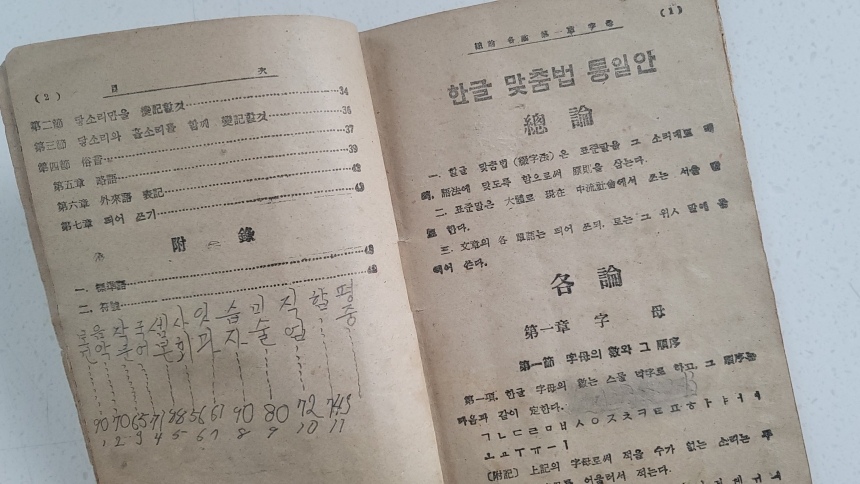 (2) 目 次
第二節 닿소리만을 變記할것 34
第三節 닿소리와 홀소리를 함께 變記할것 36
第四節 俗音 37
第五章 略語 39
第六章 外來語 表記 42
第七章 띄어 쓰기 43
附 錄
一. 標準語 45
二. 符號 48
음 작 국 셈 사 잇 습 직 함 평
악 문 어 본 회 과 자 술 업 중
90 70 65 71 88 56 67 90 80 72 749
1 2 3 4 5 6 7 8 9 10 11
總論 各論 第一章 字母 (1)
한글 맞춤법 통일안
總 論
一. 한글 맞춤법(綴字法)은 표준말을 그 소리대로 때
語法에 맞도록 함으로써 原則을 삼는다.
二. 표준말은 大體로 現在 中流社會에서 쓰는 서울 말
로 한다.
三. 文章의 各 單語는 띄어 쓰되, 토는 그 위人 말에
띄어 쓴다.
各 論
第一章 字 母
第一節 字母의 數와 그 順序
第一項. 한글 字母의 數는 스물 넉字로 하고, 그 順序는
다음과 같이 定한다.
ㄱ ㄴ ㄷ ㄹ ㅁ ㅂ ㅅ ㅇ ㅈ ㅊ ㅋ ㅌ ㅍ ㅎ ㅏ ㅑ ㅓ ㅕ
ㅗ ㅛ ㅜ ㅠ ㅡ ㅣ
〔附記〕 上記의 字母로써 적을 수가 없는 소리는 두
어울러서 적는다.